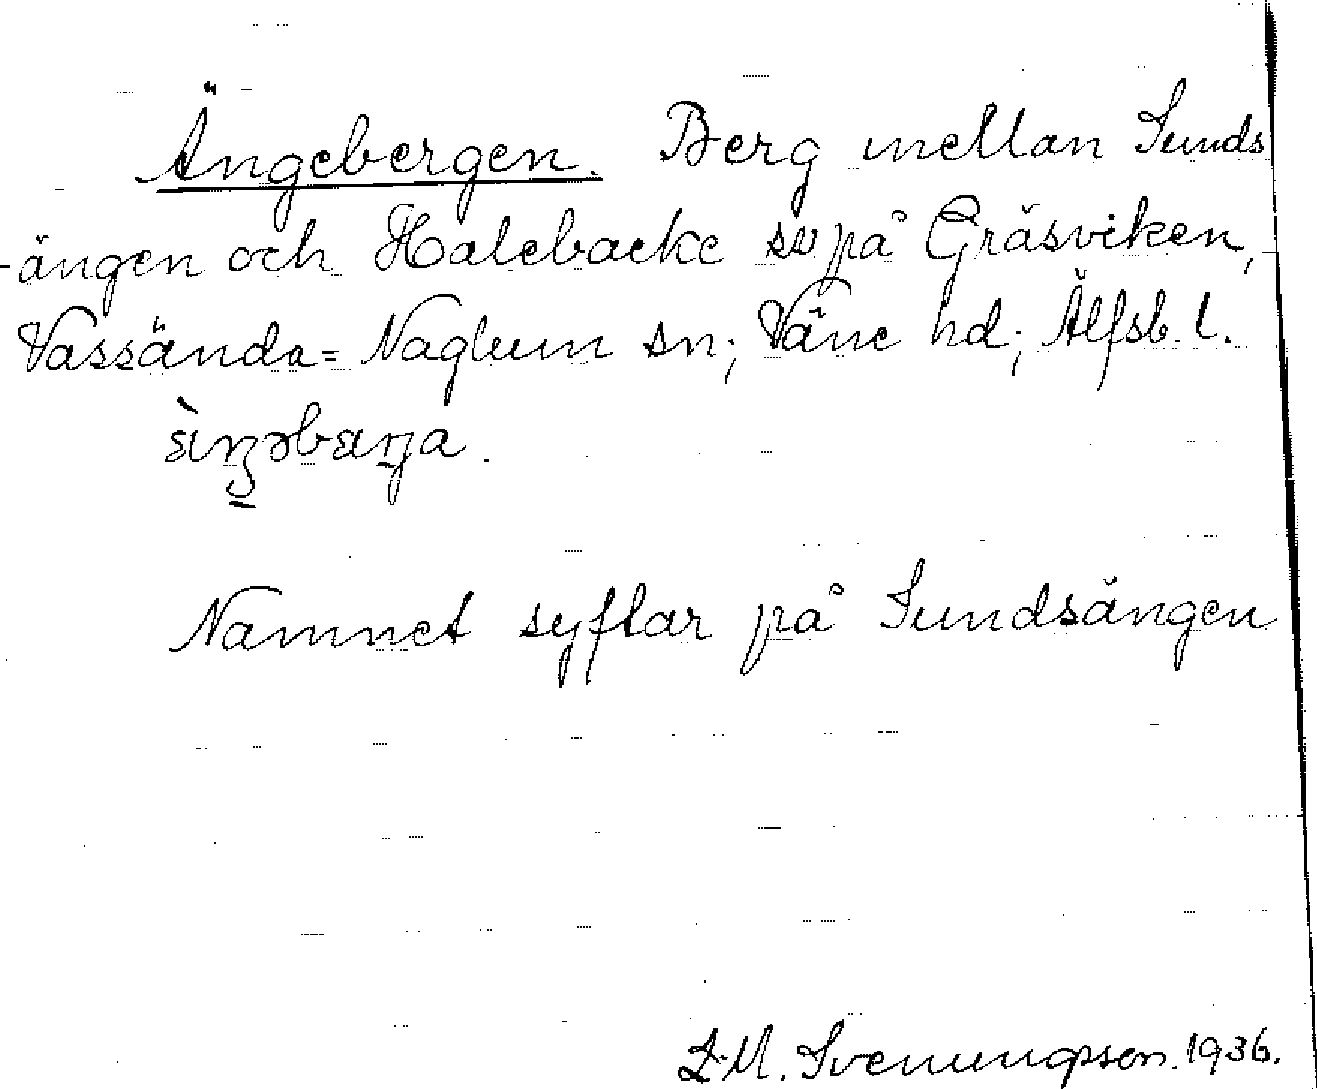 Ängebergen. Berg mellan Sunds
-ängen och Halebacke sv på Gräsviken,
Vassända=Naglum sn; Väne hd; Älfsb. l.
Namnet syftar på Sundsängen
L.M. Svenungsson. 1936.